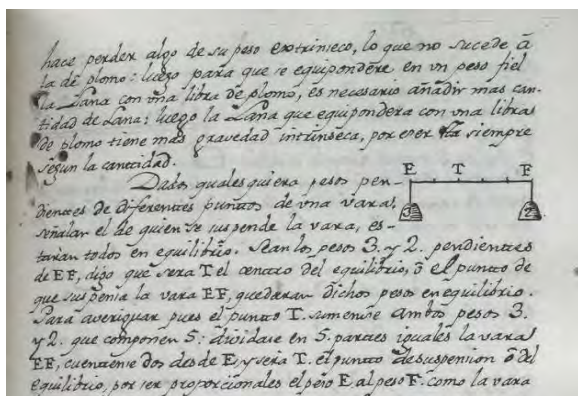 hace perder algo de su peso extrinseco, lo que no sucede â
la de plomo: luego para que se equipondere en vn peso fiel
la Lana con vna libra de plomo, es necesario añadir mas can-
tidad de Lana: luego la Lana que equipondera con vna libra
de plomo tiene mas gravedad intrinseca, por ser siempre
segun la cantidad.
E T F
Dados qualesquiera pesos pen-
dientes de diferentes puntos de vna vara,
señalar el de quien si se suspende la vara, es-
3 2
taràn todos en equilibrio. Sean los pesos 3. y 2. pendientes
de EF, digo que sera T. el centro del equilibrio, ô el punto de
que suspensa la vara EF, quedaran dichos pesos en equilibrio.
Para averiguar pues el punto T. sumense ambos pesos 3.
y 2. que componen 5: dividase en 5. partes iguales la vara
EF, cuentense dos desde E, y sera T. el punto de suspension ô del
equilibrio, por ser proporcionales el peso E, al peso F. como la vara